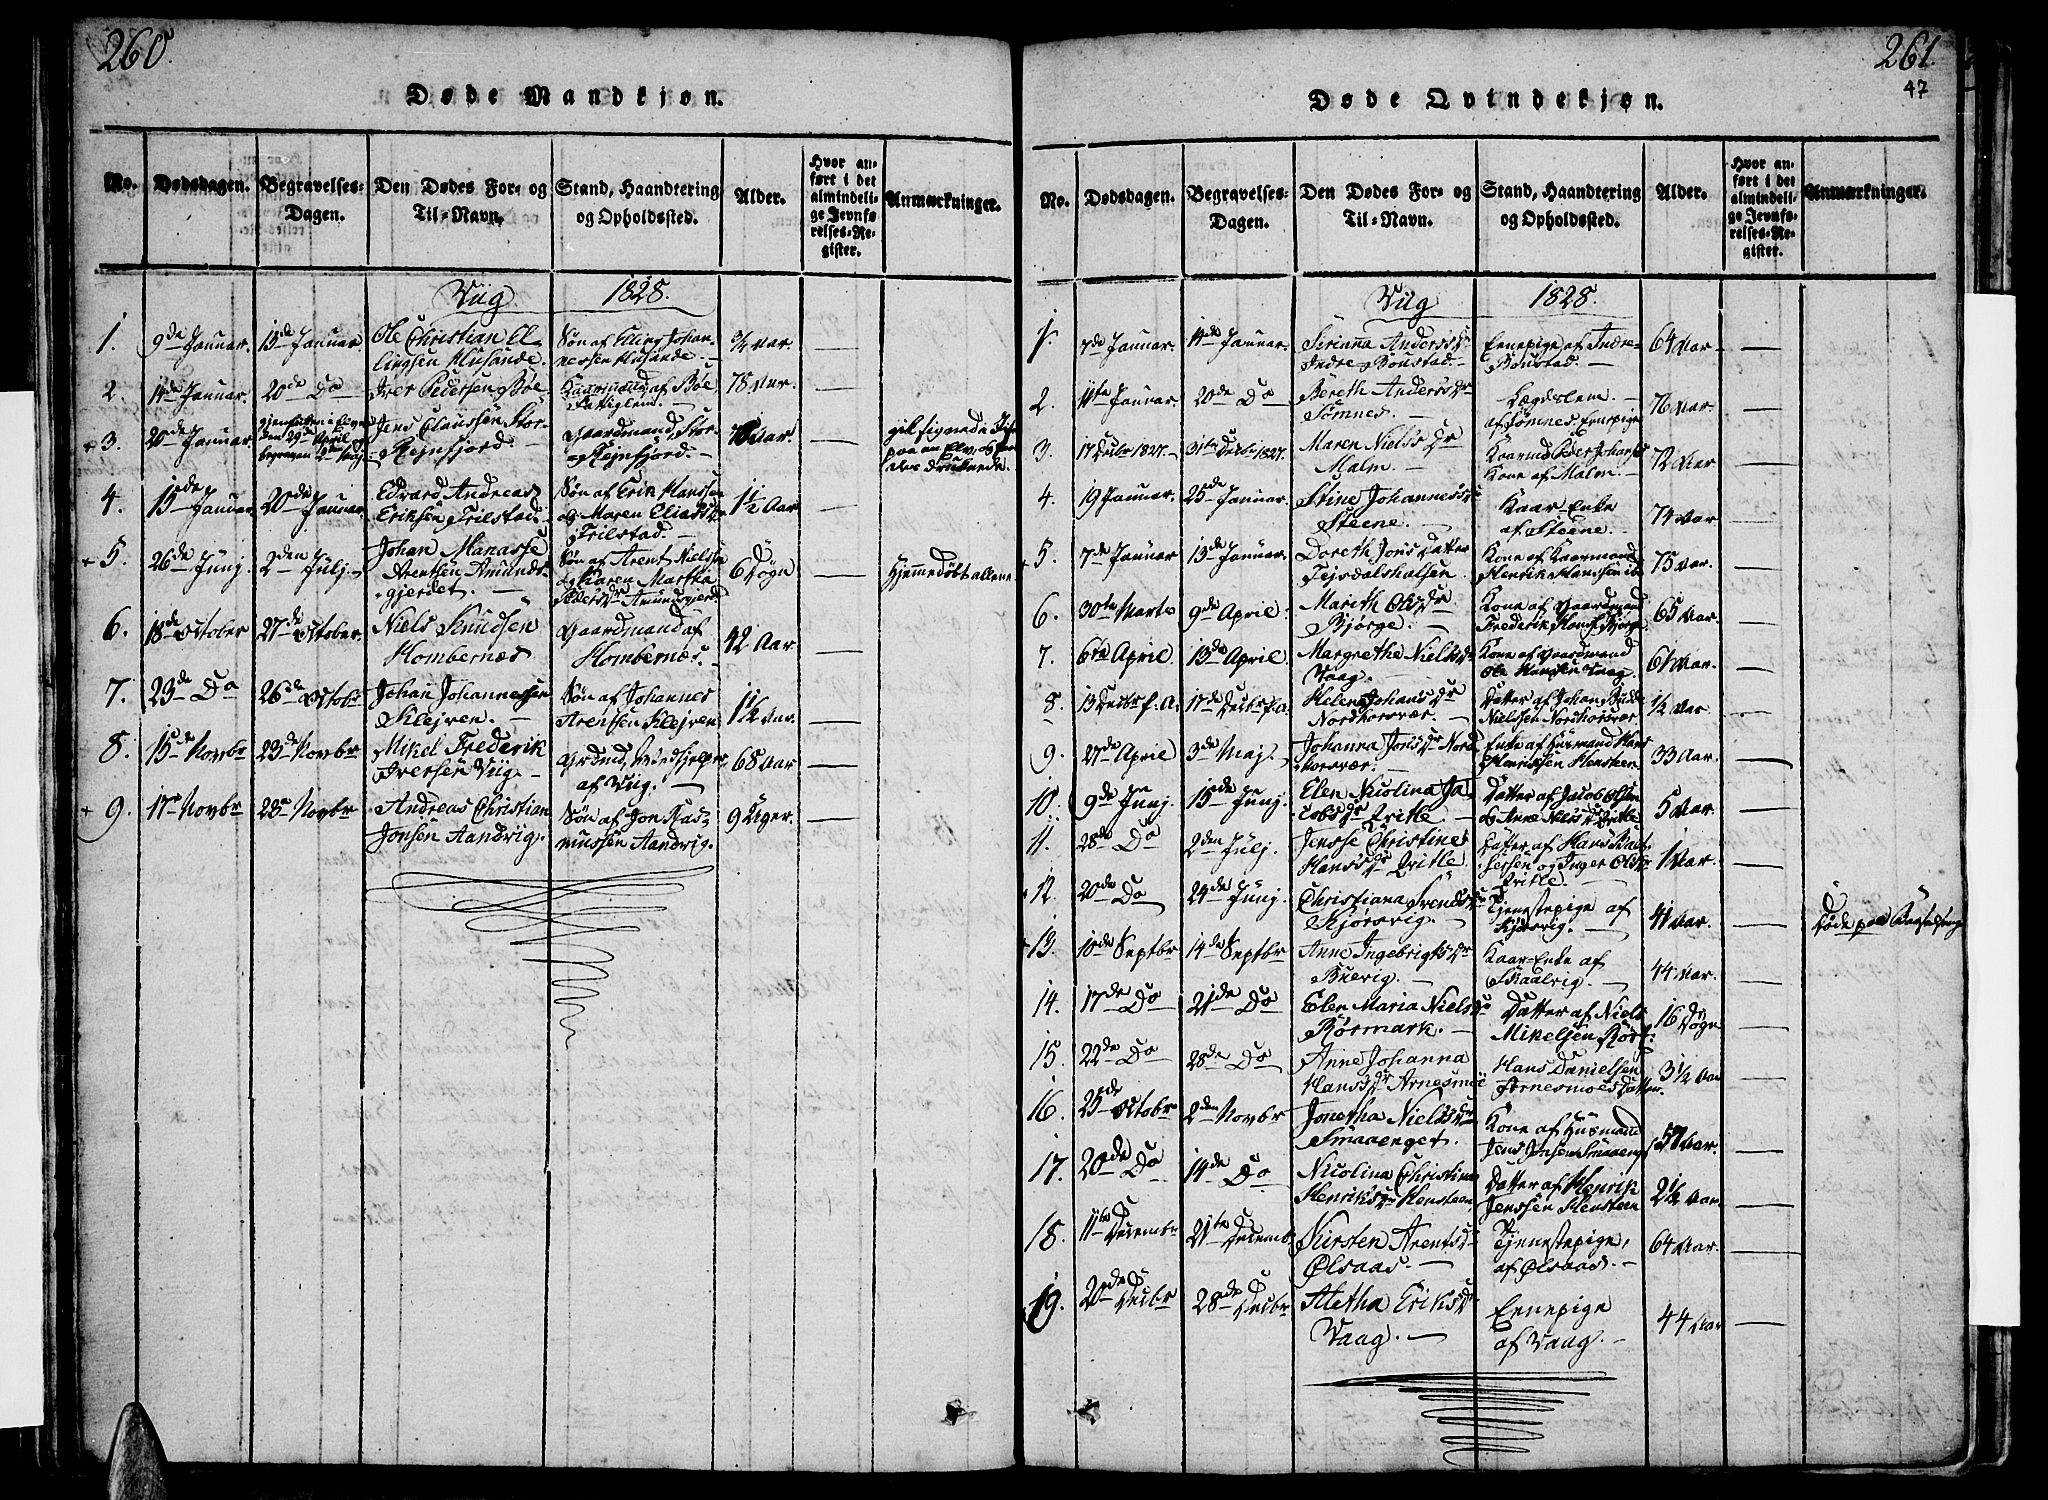 260.
Døde Mandkjøn.
No.
Dødsdagen.
Begravelses-
Dagen.
Den Dødes For- og
Til-Navn.
Stand, Haandtering
og Opholdssted.
Alder.
Hvor an-
ført i det
almindeli-
ge Jevnfø-
relses-Re-
gister.
Anmærkninger.
Viig 1828.
1. 9de Januar. 13de Januar. Ole Christian El-
lingsen Husande. Søn af Elling Johan-
nessen Husande. 3/4 Aar.
2. 14de Januar. 20de Do Iver Pedersen Bøe Kaarmand af Bøe 78 Aar.
Fattiglem.
3. 20de Januar. gjenfunden i Elven
den 29de April og
begraven 2den Maj Jens Claussen Stor-
Rejnfjord. Gaardmand, Stor-
Rejnfjord.
paa en Elv, og
druknede.
4. 15de Januar 20de Januar Edvard Andreas
Eriksen Trilstad. Søn af Erik Hanssen
og Maren Eliasdr
Trilstad. 1 1/2 Aar
5. 26de Junj 2den Julj Johan Manasse
Arentsen Amunds-
gjerdet. Søn af Arent Nielssen
og Karen Martha
Pedersdr Amundsgjerd. 6 Døgn Hjemmedøbt allene
6. 18de October 27de October. Niels Knudsen
Hombernæs Gaardmand af
Hombernæs. 42 Aar.
7. 23de Do 26de Octobr Johan Johannessen
Klejven. Søn af Johannes
Arentsen Klejven 1 1/2 Aar.
8. 15de Novbr 23de Novbr Mikel Frederik
Iversen Viig. Grdmd, Medhjelper
af Viig. 68 Aar
9. 17de Novbr 28de Novbr Andreas Christian
Jonsen Aandvig. Søn af Jon Ras-
mussen Aandvig. 9 Uger.
261.
47
Døde Qvindekjøn.
No.
Dødsdagen.
Begravelses-
Dagen.
Den Dødes For- og
Til-Navn.
Stand, Haandtering
og Opholdssted.
Alder.
Hvor an-
ført i det
almindeli-
ge Jevnfø-
relses-Re-
gister.
Anmærkninger.
Viig 1828.
1. 7de Januar. 14de Januar. Sirinna Andersdr
Indre Boustad. Eenepige af Indre-
Boustad. 64 Aar
2. 11te Januar. 20de Do Bereth Andersdr
Sømnes. Lægdslem.
af Sømnes. Eenepige 76 Aar.
3. 17 Decbr 1827. 31te Decbr 1827. Maren Nielsdr
Malm. Kaarmd Peder Johans
Kone af Malm 72 Aar
4. 19 Januar. 25de Januar. Stine Johannesdr
Steene. Kaar-Enke
af Steene. 74 Aar
5. 7de Januar 13de Januar. Doreth Jons Datter
Tejsdalshalsen Kone af Kaarmand
Henrik Hanssen 75 Aar.
6. 30te Marts 9de April. Marith Olsdr
Bjørge. Kone af Gaardmand
Frederik Hans. Bjørge. 65 Aar.
7. 6te April. 13de April. Margrethe Nielsdr
Vaag. Kone af Gaardmand
Ole Hanssen Vaag. 61 Aar.
8. 13 Decbr f.A. 17de Decbr f.A. Helen Johansdr
Nordhorsvær. Datter af Johan
Nielssen Nordhorsvær 1/2 Aar
9. 27de April 3de Maj. Johanna Jonsdr Nord-
horsvær. Enke af Huusmand Hans
Henrikssen Hensteen. 33 Aar.
10. 9de Junj 15de Junj. Elen Nicolina Ja-
cobsdr Qvitle. Datter af Jacob Olsen
og Anne Nielsdr Qvitle 5 Aar.
11. 28de Do 2den Julj. Jensse Christine
Hansdr Qvitle. Datter af Hans Bal-
sersen og Inger Olsdr
Qvitle. 1 Aar.
12. 20de Do 24de Junj. Christiana Svendsdr
Kjørsvig. Tjenestepige af
Kjørsvig. 41 Aar. Døde paa Barselseng
13. 10de Septbr 14de Septbr Anne Ingebrigtsdr
Buevig. Kaar-Enke af
Skaalvig. 44 Aar.
14. 17de Do 21de Do Elen Maria Nielsdr
Børmark. Datter af Niels
Mikelsen 16 Døgn
15. 22de Do 28de Do Anne Johanna
Hansdr Arnesmoe Hans Danielsen
Arnesmoes Datter. 3 1/2 Aar
16. 25de Octobr 2den Novbr Jonetha Nielsdr
Smaaenget. Kone af Husmand
Jens Jensen Smaaeng 57 Aar.
17. 20de Do 14de Do Nicolina Christina
Henriksdr Hensteen. Datter af Henrik
Jenssen Hensteen 2 1/2 Aar.
18. 11te Decembr 21te Decemb. Kirsten Arentsdr
Ølsaas. Tjenestepige,
af Ølsaas. 64 Aar.
19. 20de Decbr 28de Decbr Aletha Eriksdr
Vaag. Eenepige
af Vaag. 44 Aar